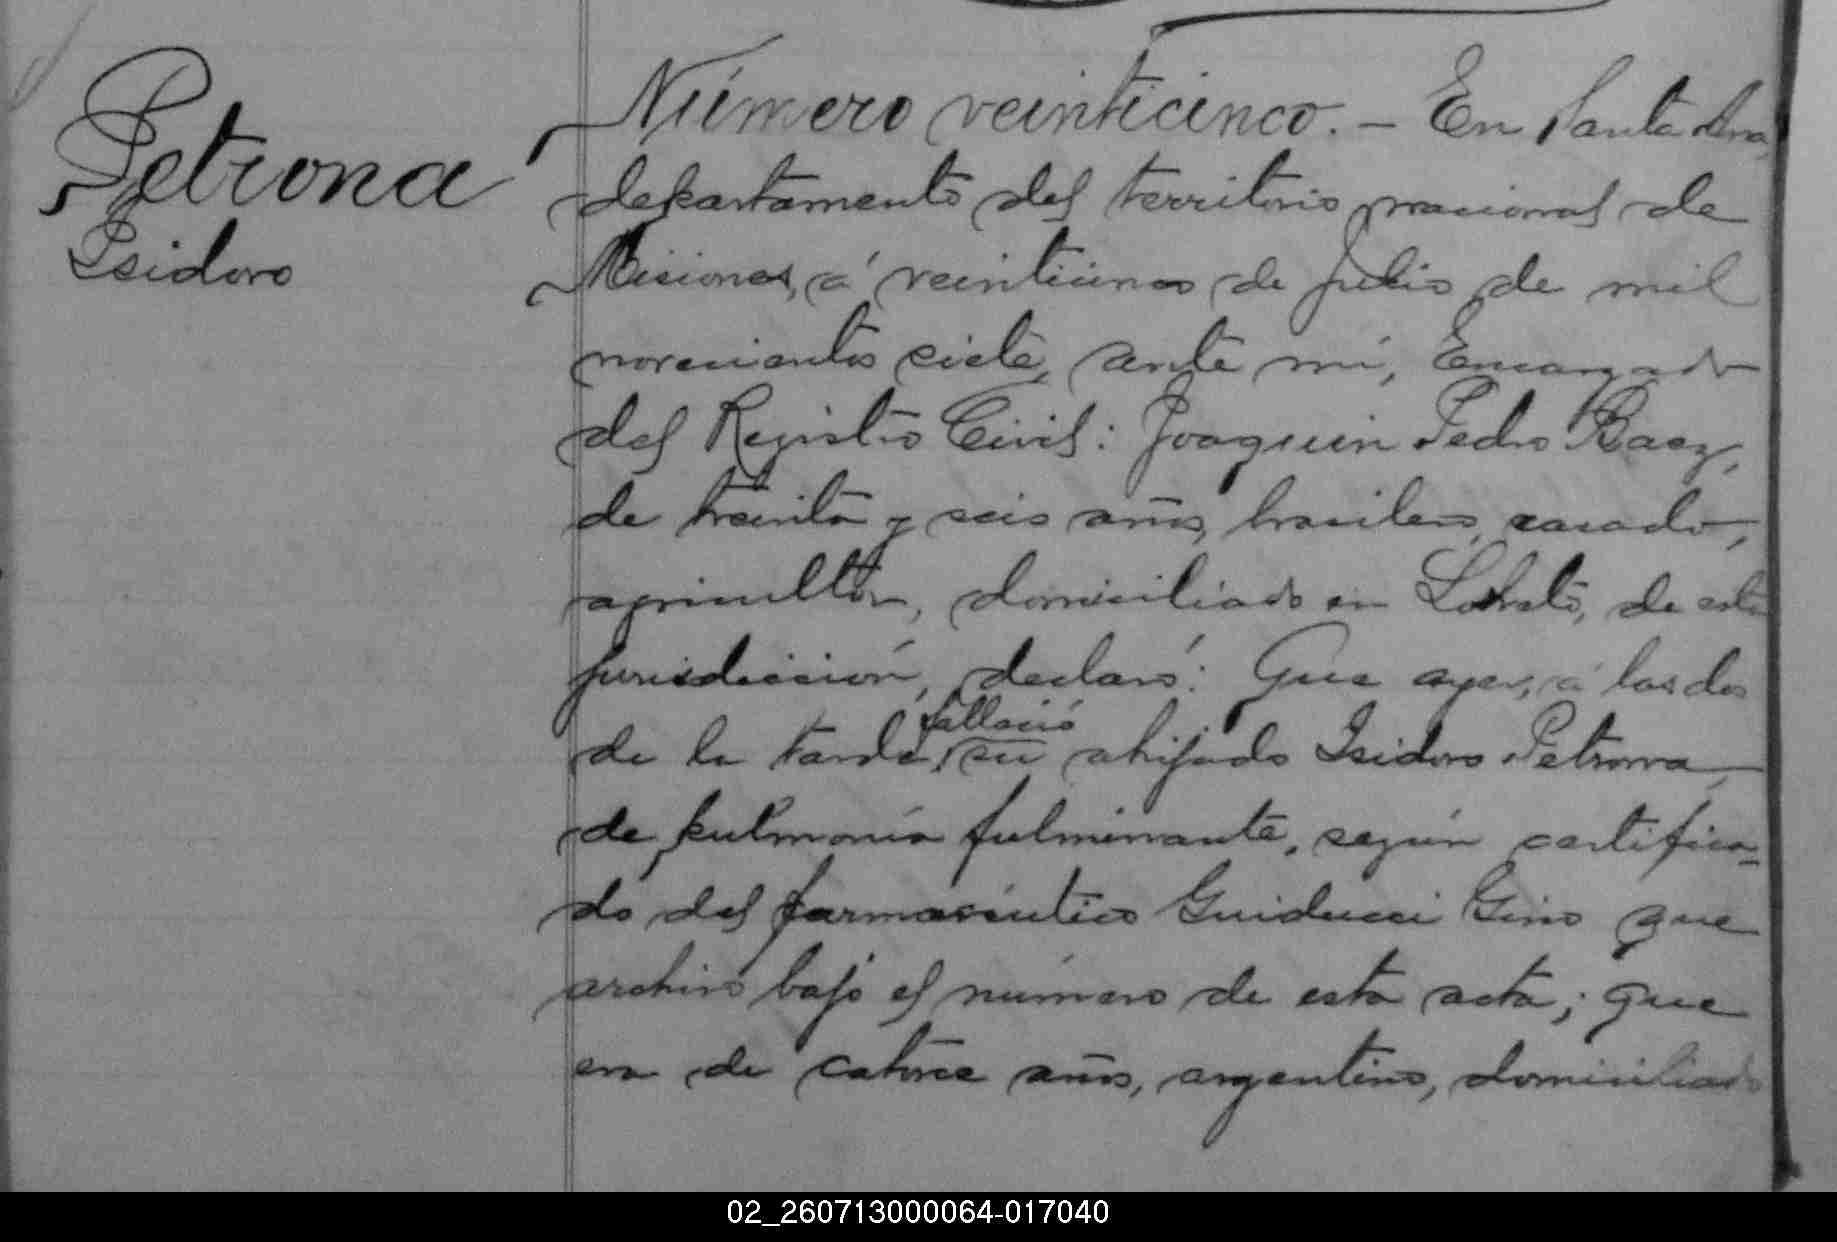 Petrona
Isidoro
Número veinticinco. - En Santa Ana,
departamento del territorio nacional de
Misiones, á veinticinco de Julio de mil
novecientos siete, ante mí, Encargado
del Registro Civil: Joaquin Pedro Baez,
de treinta y seis años, brasilero, casado,
agricultor, domiciliado en Loreto, de esta
jurisdicción, declaró: Que ayer, á las dos
fallació
de la tarde, su ahijado Isidoro Petrona,
de pulmonía fulminante, según certifica-
do del farmacéutico Guiducci Gino que
archivo bajo el número de esta acta; que
era de catorce años, argentino, domiciliado
02_260713000064-017040